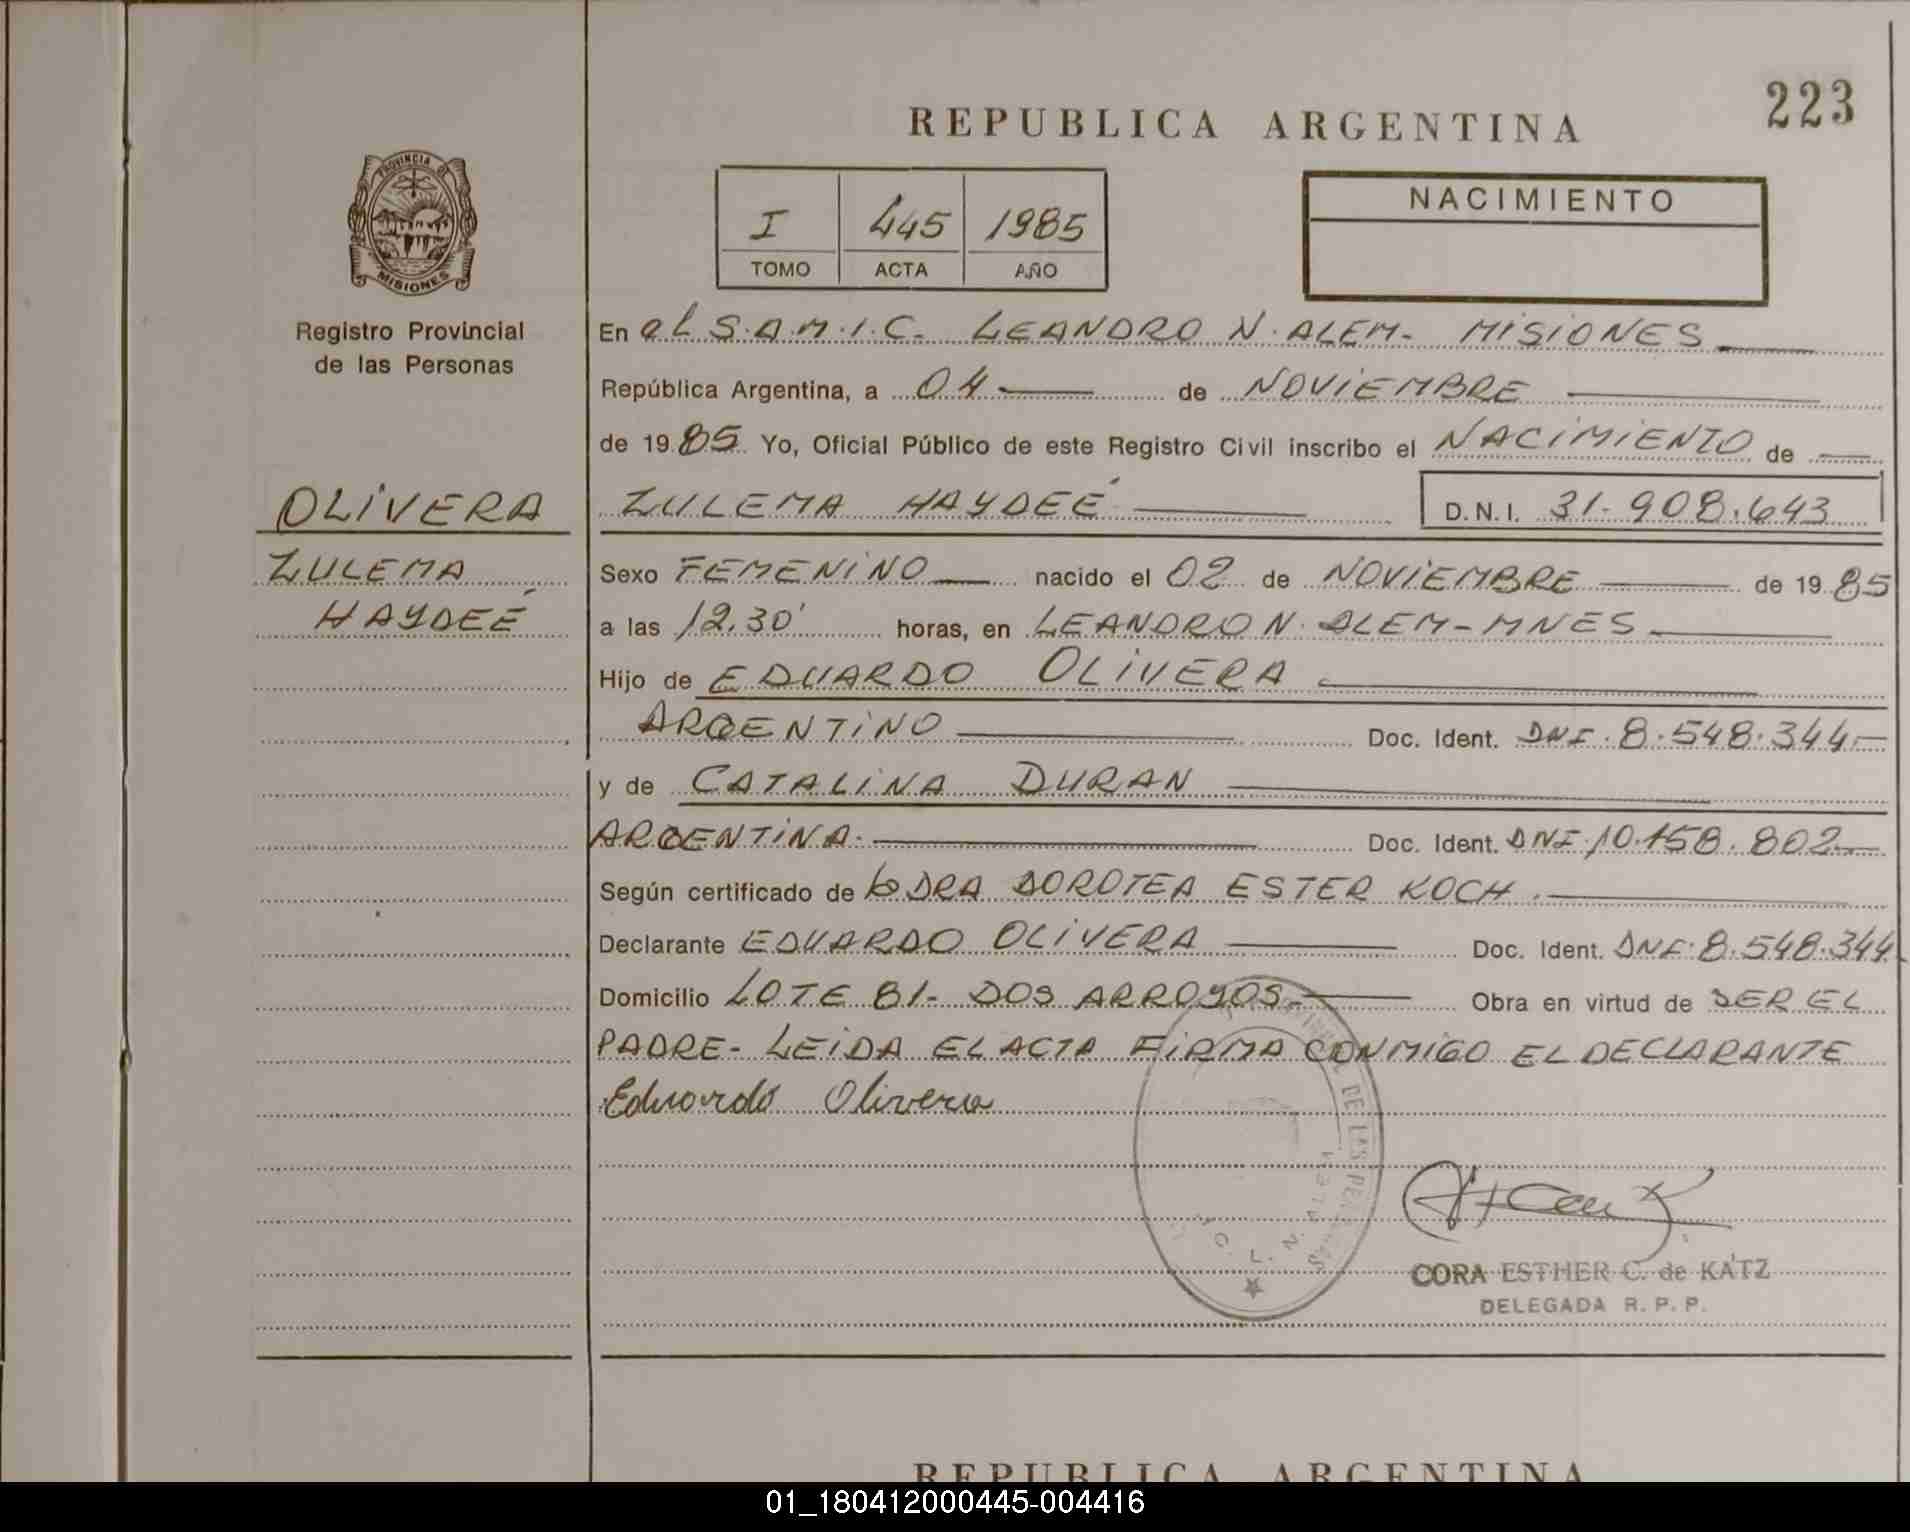 223
REPUBLICA ARGENTINA
PROVINCIA D
MISIONES
Registro Provincial
de las Personas
I 445 1985
TOMO ACTA AÑO
NACIMIENTO
En el S.A.M.I.C. LEANDRO N. ALEM- MISIONES
República Argentina, a 04 de NOVIEMBRE
de 1985 Yo, Oficial Público de este Registro Civil inscribo el NACIMIENTO de
OLIVERA
ZULEMA HAYDEÉ D.N.I. 31.908.643
ZULEMA
HAYDEÉ
Sexo FEMENINO nacido el 02 de NOVIEMBRE de 1985
a las 12.30' horas, en LEANDRO N. ALEM-MNES
Hijo de EDUARDO OLIVERA
ARGENTINO Doc. Ident. DNI. 8.548.344
y de CATALINA DURAN
ARGENTINA. Doc. Ident. DNI. 10.158.802
Según certificado de la DRA DOROTEA ESTER KOCH.
Declarante EDUARDO OLIVERA Doc. Ident. DNI. 8.548.344
Domicilio LOTE 81- DOS ARROYOS- Obra en virtud de SER EL
PADRE- LEIDA EL ACTA FIRMA CONMIGO EL DECLARANTE
Eduardo Olivera
DE LAS
CORA ESTHER C. de KATZ
DELEGADA R. P. P.
REPUBLICA ARGENTINA
01_180412000445-004416